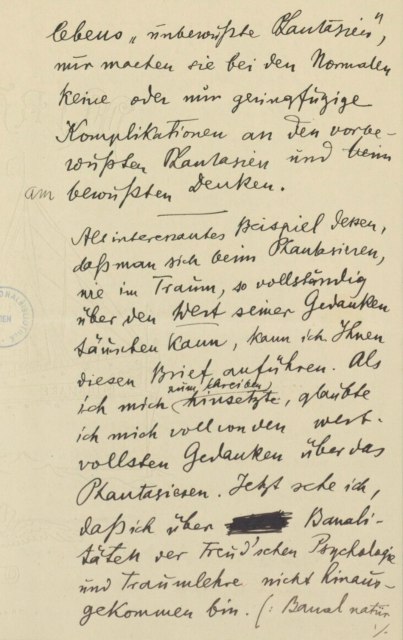 lebens „unbewußte Phantasien",
nur machen sie bei den Normalen
keine oder nur geringfügige
Komplikationen an den vorbe-
wußten Phantasien und beim
am bewußten Denken.
Als interessantes Beispiel dessen,
daß man sich beim Phantasieren,
wie im Traum, so vollständig
über den Wert seiner Gedanken
täuschen kann, kann ich Ihnen
diesen Brief anführen. Als
zum Schreiben
ich mich hinsetzte, glaubte
ich mich voll von den wert-
vollsten Gedanken über das
Phantasieren. Jetzt sehe ich,
daß ich über Banali-
täten der Freud'schen Psychologie
und Traumlehre nicht hinaus-
gekommen bin. (: Banal natür